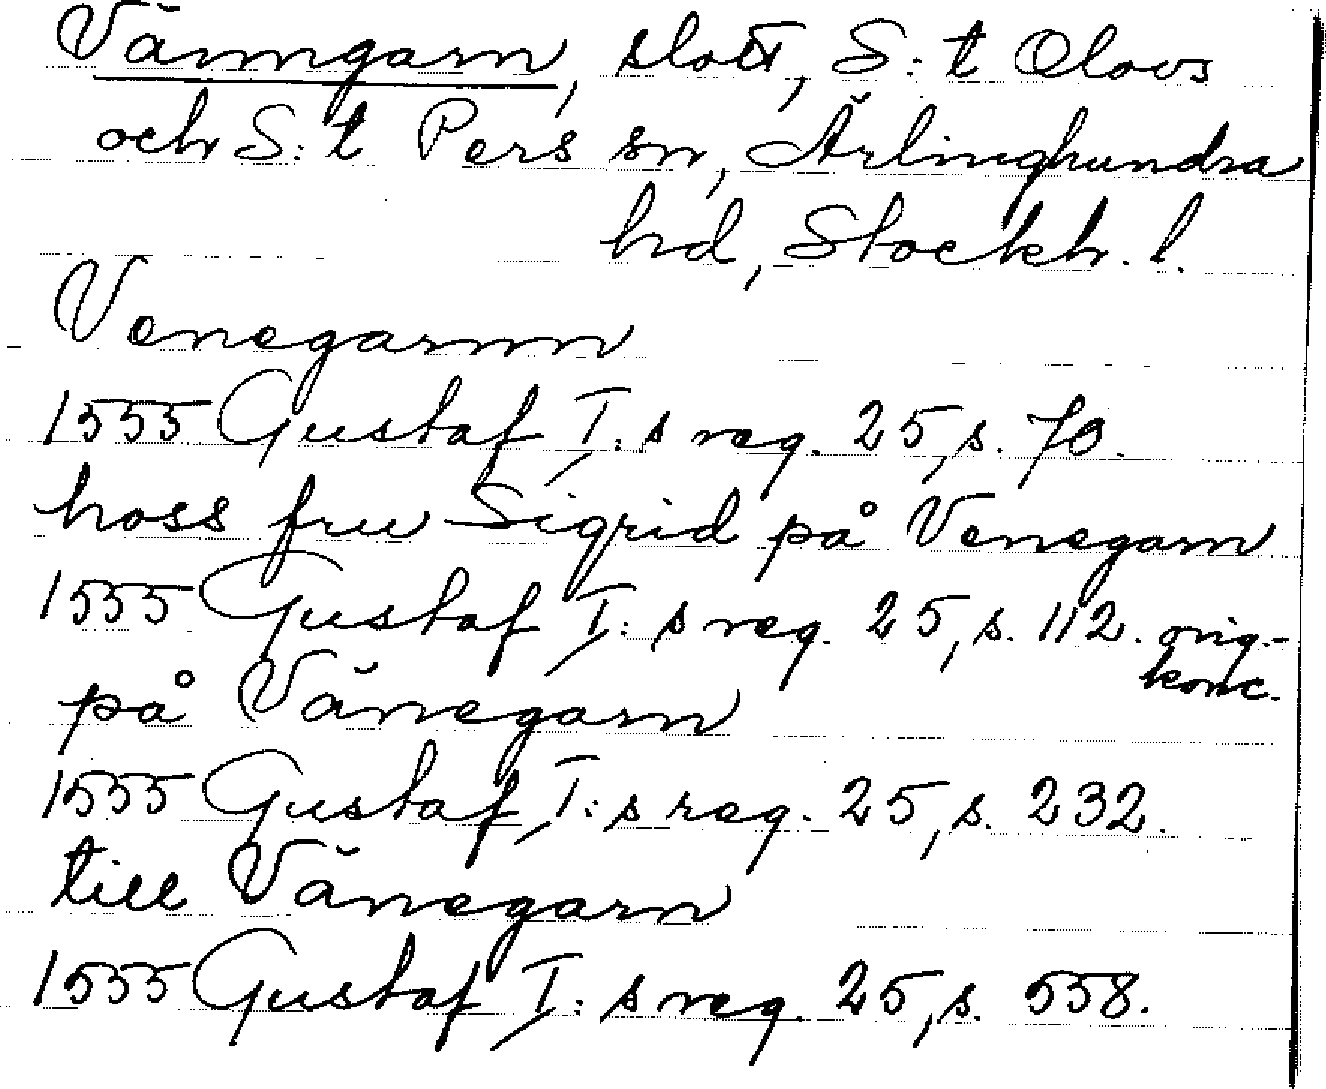 Vänngarn, slott, S:t Olovs
och S:t Pers sn, Ärlinghundra
hd, Stockh. l.
Venegarnn
1555 Gustaf I:s reg. 25, s. 73.
hoss fru Sigrid på Venegarn
1555 Gustaf I:s reg. 25, s. 112. orig.-
konc.
på Vänegarn
1555 Gustaf I:s reg. 25, s. 232.
till Vänegarn
1555 Gustaf I:s reg. 25, s. 558.